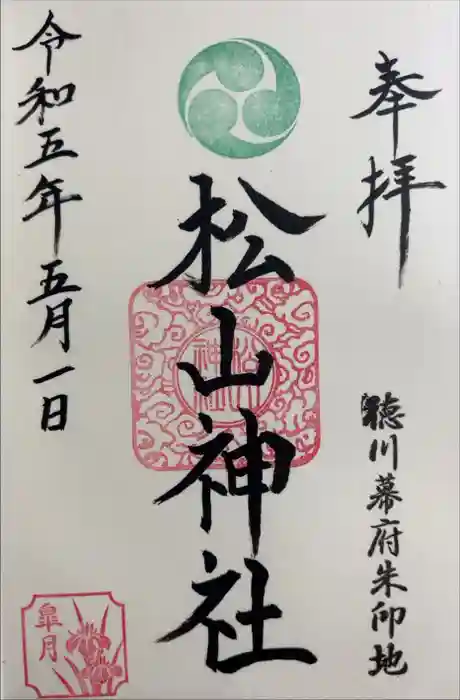 奉拝
徳川幕府朱印地
松山神社
令和五年五月一日
皐月